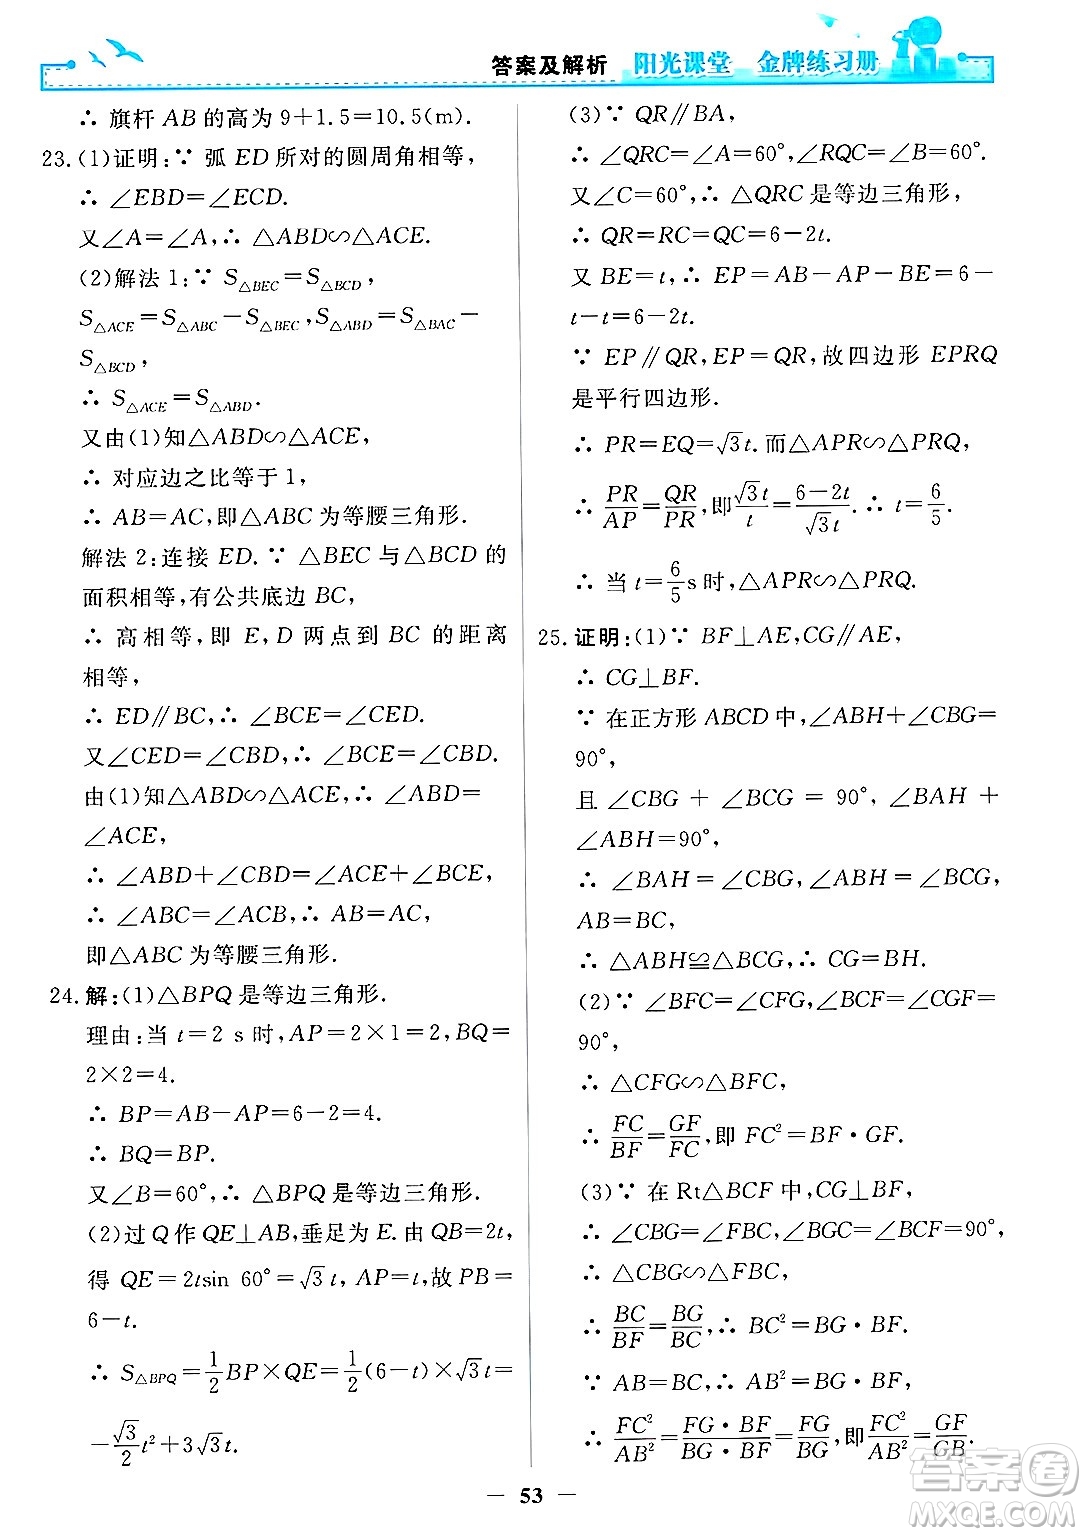 答案及解析 阳光课堂 金牌练习册
∴ 旗杆 AB 的高为 9+1.5=10.5(m).
23.(1)证明:∵ 弧 ED 所对的圆周角相等,
∴ ∠EBD=∠ECD.
又∠A=∠A,∴ △ABD∽△ACE.
(2)解法 1:∵ S△BEC=S△BCD,
S△ACE=S△ABC−S△BEC,S△ABD=S△BAC−
S△BCD,
∴ S△ACE=S△ABD.
又由(1)知△ABD∽△ACE,
∴ 对应边之比等于 1,
∴ AB=AC,即△ABC 为等腰三角形.
解法 2:连接 ED.∵ △BEC 与△BCD 的
面积相等,有公共底边 BC,
∴ 高相等,即 E,D 两点到 BC 的距离
相等,
∴ ED∥BC,∴ ∠BCE=∠CED.
又∠CED=∠CBD,∴ ∠BCE=∠CBD.
由(1)知△ABD∽△ACE,∴ ∠ABD=
∠ACE,
∴ ∠ABD+∠CBD=∠ACE+∠BCE,
∴ ∠ABC=∠ACB,∴ AB=AC,
即△ABC 为等腰三角形.
24.解:(1)△BPQ 是等边三角形.
理由:当 t=2 s 时,AP=2×1=2,BQ=
2×2=4.
∴ BP=AB−AP=6−2=4.
∴ BQ=BP.
又∠B=60°,∴ △BPQ 是等边三角形.
(2)过 Q 作 QE⊥AB,垂足为 E.由 QB=2t,
得 QE=2tsin 60°=√3t,AP=t,故 PB=
6−t.
∴ S△BPQ=1/2BP×QE=1/2(6−t)×√3t=
−√3/2t²+3√3t.
(3)∵ QR∥BA,
∴ ∠QRC=∠A=60°,∠RQC=∠B=60°.
又∠C=60°,∴ △QRC 是等边三角形,
∴ QR=RC=QC=6−2t.
又 BE=t,∴ EP=AB−AP−BE=6−
t−t=6−2t.
∵ EP∥QR,EP=QR,故四边形 EPRQ
是平行四边形.
∴ PR=EQ=√3t.而△APR∽△PRQ,
∴ PR/AP=QR/PR,即√3t/t=6−2t/√3t.∴ t=6/5.
∴ 当 t=6/5s 时,△APR∽△PRQ.
25.证明:(1)∵ BF⊥AE,CG∥AE,
∴ CG⊥BF.
∵ 在正方形 ABCD 中,∠ABH+∠CBG=
90°,
且 ∠CBG + ∠BCG = 90°, ∠BAH +
∠ABH=90°,
∴ ∠BAH = ∠CBG, ∠ABH = ∠BCG,
AB=BC,
∴ △ABH≌△BCG,∴ CG=BH.
(2)∵ ∠BFC=∠CFG,∠BCF=∠CGF=
90°,
∴ △CFG∽△BFC,
∴ FC/BF=GF/FC,即 FC²=BF·GF.
(3)∵ 在 Rt△BCF 中,CG⊥BF,
∴ ∠CBG=∠FBC,∠BGC=∠BCF=90°,
∴ △CBG∽△FBC,
∴ BC/BF=BG/BC,∴ BC²=BG·BF.
∵ AB=BC,∴ AB²=BG·BF,
∴ FC²/AB²=FG·BF/BG·BF=FG/BG,即FC²/AB²=GF/GB.
53
答案圈
MXQE.COM